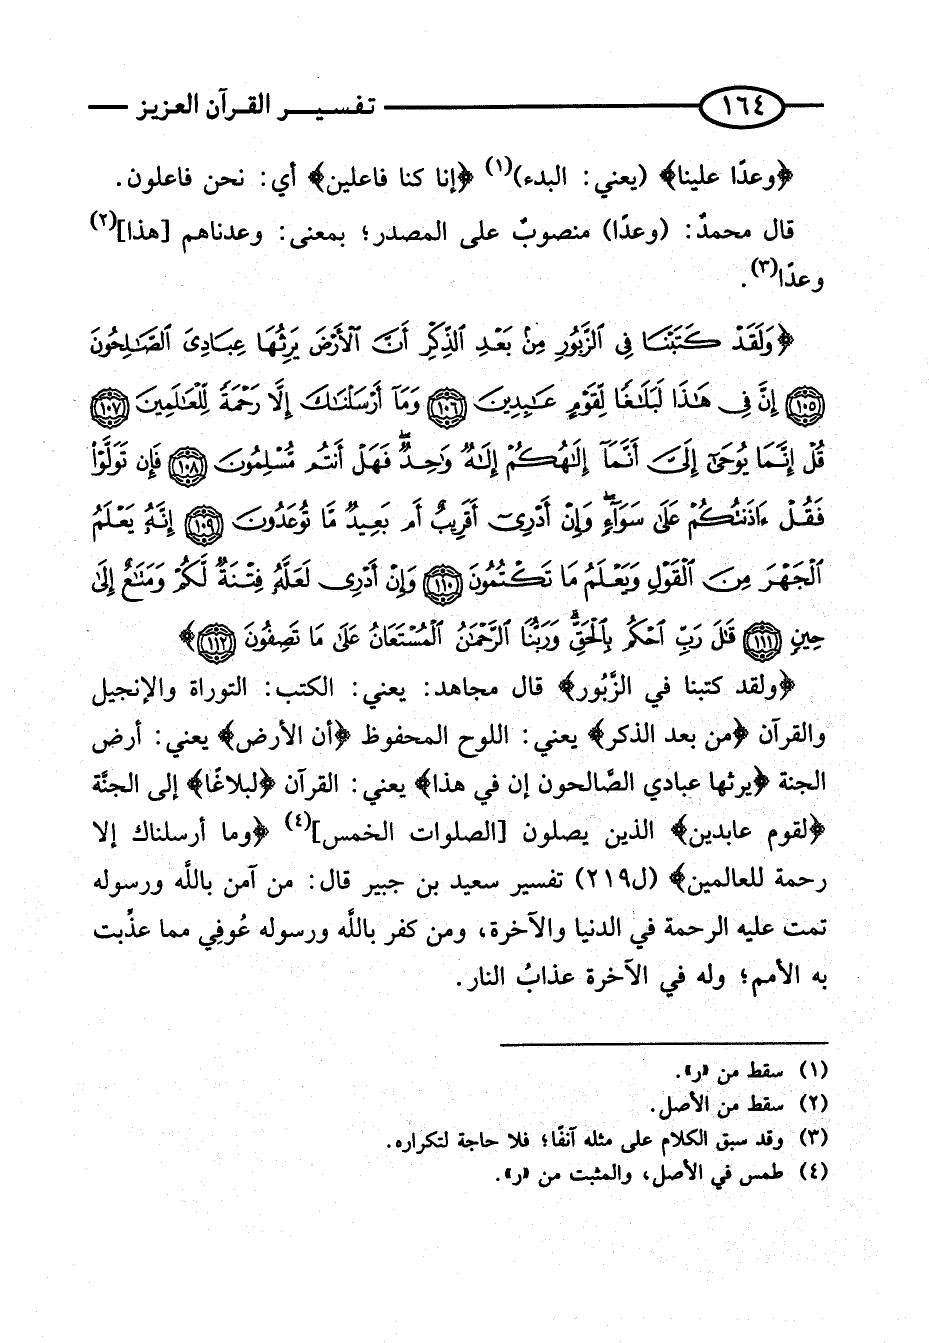 ١٦٤ تفسير القرآن العزيز
﴿وعدًا علينا﴾ (يعني: البدء)(١) ﴿إنا كنا فاعلين﴾ أي: نحن فاعلون.
قال محمدٌ: (وعدًا) منصوبٌ على المصدر؛ بمعنى: وعدناهم [هذا](٢)
وعدًا(٣).
﴿وَلَقَدْ كَتَبْنَا فِى ٱلزَّبُورِ مِنۢ بَعْدِ ٱلذِّكْرِ أَنَّ ٱلْأَرْضَ يَرِثُهَا عِبَادِىَ ٱلصَّٰلِحُونَ
١٠٥ إِنَّ فِى هَٰذَا لَبَلَٰغًا لِّقَوْمٍ عَٰبِدِينَ ١٠٦ وَمَآ أَرْسَلْنَٰكَ إِلَّا رَحْمَةً لِّلْعَٰلَمِينَ ١٠٧
قُلْ إِنَّمَا يُوحَىٰٓ إِلَىَّ أَنَّمَآ إِلَٰهُكُمْ إِلَٰهٌ وَٰحِدٌ ۖ فَهَلْ أَنتُم مُّسْلِمُونَ ١٠٨ فَإِن تَوَلَّوْا۟
فَقُلْ ءَاذَنتُكُمْ عَلَىٰ سَوَآءٍ ۖ وَإِنْ أَدْرِىٓ أَقَرِيبٌ أَم بَعِيدٌ مَّا تُوعَدُونَ ١٠٩ إِنَّهُۥ يَعْلَمُ
ٱلْجَهْرَ مِنَ ٱلْقَوْلِ وَيَعْلَمُ مَا تَكْتُمُونَ ١١٠ وَإِنْ أَدْرِى لَعَلَّهُۥ فِتْنَةٌ لَّكُمْ وَمَتَٰعٌ إِلَىٰ
حِينٍ ١١١ قَٰلَ رَبِّ ٱحْكُم بِٱلْحَقِّ ۗ وَرَبُّنَا ٱلرَّحْمَٰنُ ٱلْمُسْتَعَانُ عَلَىٰ مَا تَصِفُونَ ١١٢﴾
﴿ولقد كتبنا في الزَّبُور﴾ قال مجاهد: يعني: الكتب: التوراة والإنجيل
والقرآن ﴿من بعد الذكر﴾ يعني: اللوح المحفوظ ﴿أن الأرض﴾ يعني: أرض
الجنة ﴿يرثها عبادي الصَّالحون إن في هذا﴾ يعني: القرآن ﴿لبلاغًا﴾ إلى الجنَّة
﴿لقوم عابدين﴾ الذين يصلون [الصلوات الخمس](٤) ﴿وما أرسلناك إلا
رحمة للعالمين﴾ (ل٢١٩) تفسير سعيد بن جبير قال: من آمن باللَّه ورسوله
تمت عليه الرحمة في الدنيا والآخرة، ومن كفر باللَّه ورسوله عُوفِي مما عذِّبت
به الأمم؛ وله في الآخرة عذابُ النار.
(١) سقط من «ر».
(٢) سقط من الأصل.
(٣) وقد سبق الكلام على مثله آنفًا؛ فلا حاجة لتكراره.
(٤) طمس في الأصل، والمثبت من «ر».